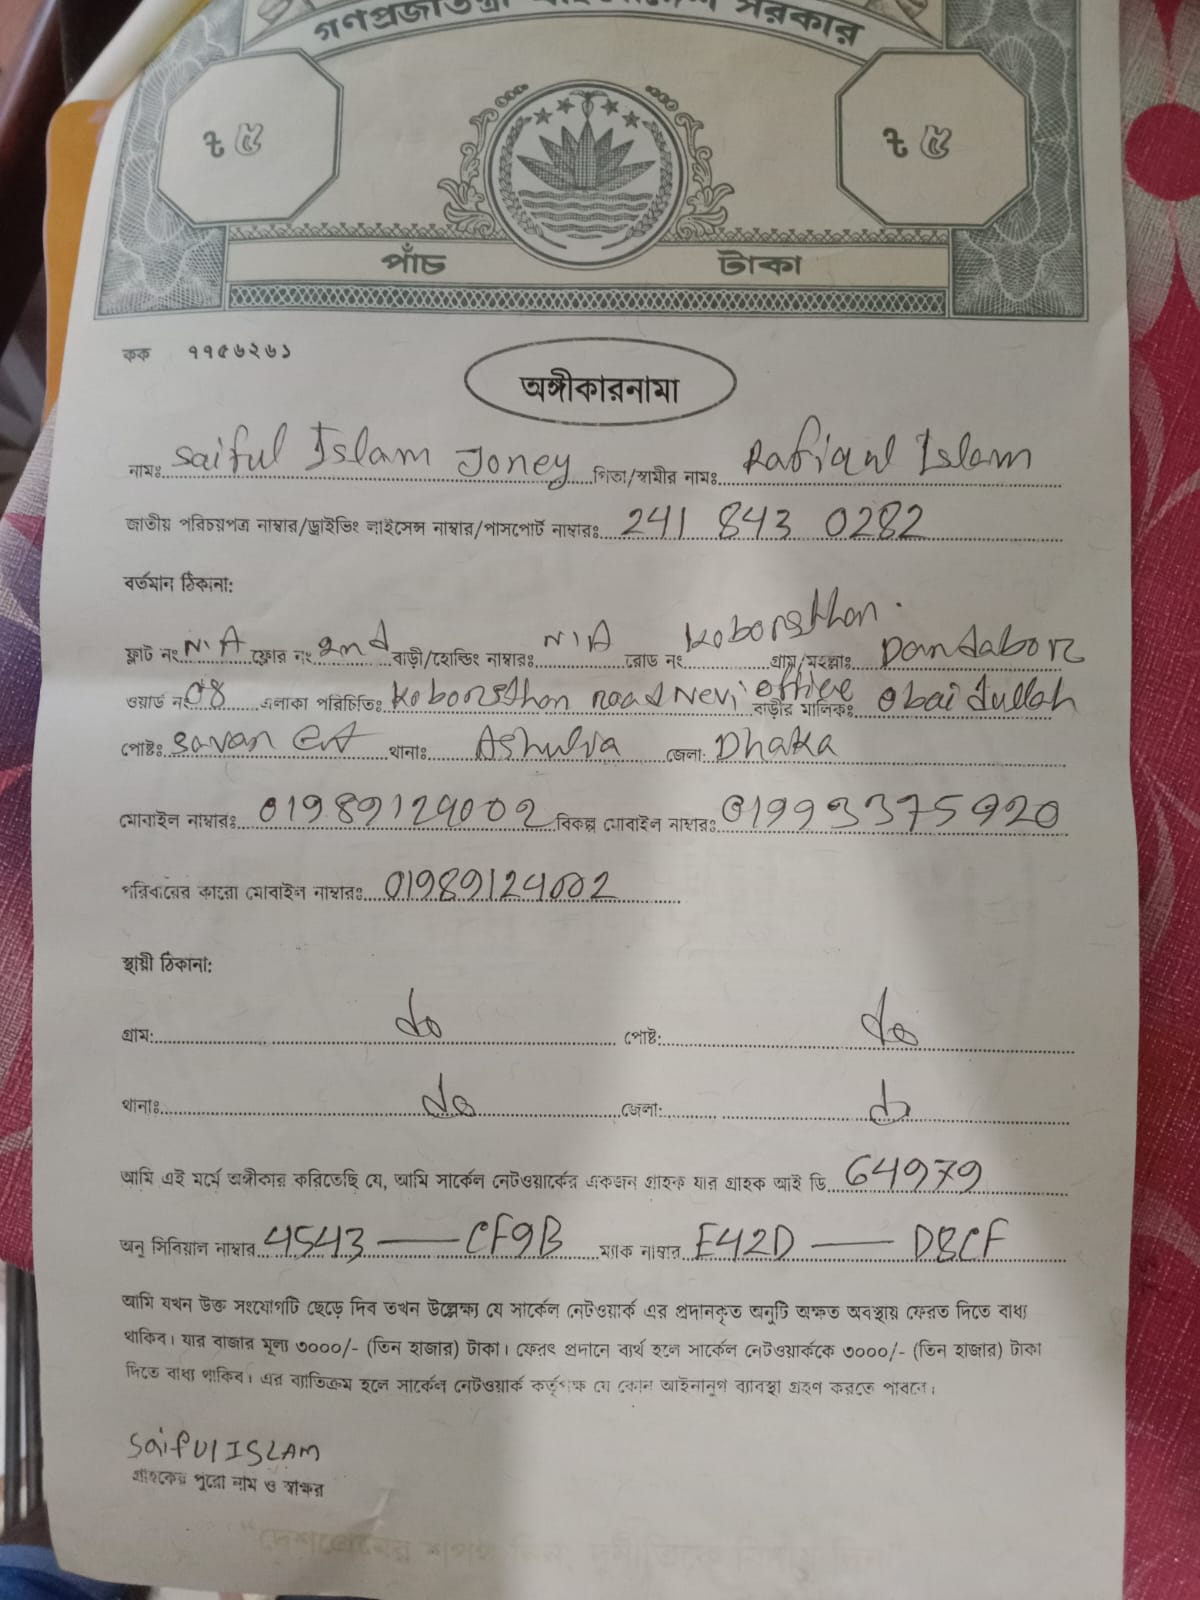 গণপ্রজাতন্ত্রী বাংলাদেশ সরকার
৳ ৫ ৳ ৫
পাঁচ টাকা
কক ৭৭৫৬২৬১
অঙ্গীকারনামা
নামঃ Saiful Islam Joney পিতা/স্বামীর নামঃ Rafiqul Islam
জাতীয় পরিচয়পত্র নাম্বার/ড্রাইভিং লাইসেন্স নাম্বার/পাসপোর্ট নাম্বারঃ 241 843 0282
বর্তমান ঠিকানা:
ফ্লাট নং N/A ফ্লোর নং 2nd বাড়ী/হোল্ডিং নাম্বারঃ N/A রোড নং Koborsthan গ্রাম/মহল্লাঃ Dendabor
ওয়ার্ড নং 08 এলাকা পরিচিতিঃ Koborsthan road Nevi office বাড়ীর মালিকঃ Obaidullah
পোষ্টঃ Savar Cant থানাঃ Ashulia জেলা: Dhaka
মোবাইল নাম্বারঃ 01989124002 বিকল্প মোবাইল নাম্বারঃ 01993375920
পরিবারের কারো মোবাইল নাম্বারঃ 01989124002
স্থায়ী ঠিকানা:
গ্রাম: do পোষ্ট: do
থানাঃ do জেলা: do
আমি এই মর্মে অঙ্গীকার করিতেছি যে, আমি সার্কেল নেটওয়ার্কের একজন গ্রাহক যার গ্রাহক আই ডি 64979
অনু সিরিয়াল নাম্বার 4543 — CF9B ম্যাক নাম্বার E42D — D8CF
আমি যখন উক্ত সংযোগটি ছেড়ে দিব তখন উল্লেক্ষ্য যে সার্কেল নেটওয়ার্ক এর প্রদানকৃত অনুটি অক্ষত অবস্থায় ফেরত দিতে বাধ্য
থাকিব। যার বাজার মূল্য ৩০০০/- (তিন হাজার) টাকা। ফেরৎ প্রদানে ব্যর্থ হলে সার্কেল নেটওয়ার্ককে ৩০০০/- (তিন হাজার) টাকা
দিতে বাধ্য থাকিব। এর ব্যাতিক্রম হলে সার্কেল নেটওয়ার্ক কর্তৃপক্ষ যে কোন আইনানুগ ব্যাবস্থা গ্রহণ করতে পারবে।
Saiful ISLAM
গ্রাহকের পুরো নাম ও স্বাক্ষর
"দেশপ্রেমের শপথ নিন, দুর্নীতিকে বিদায় দিন"